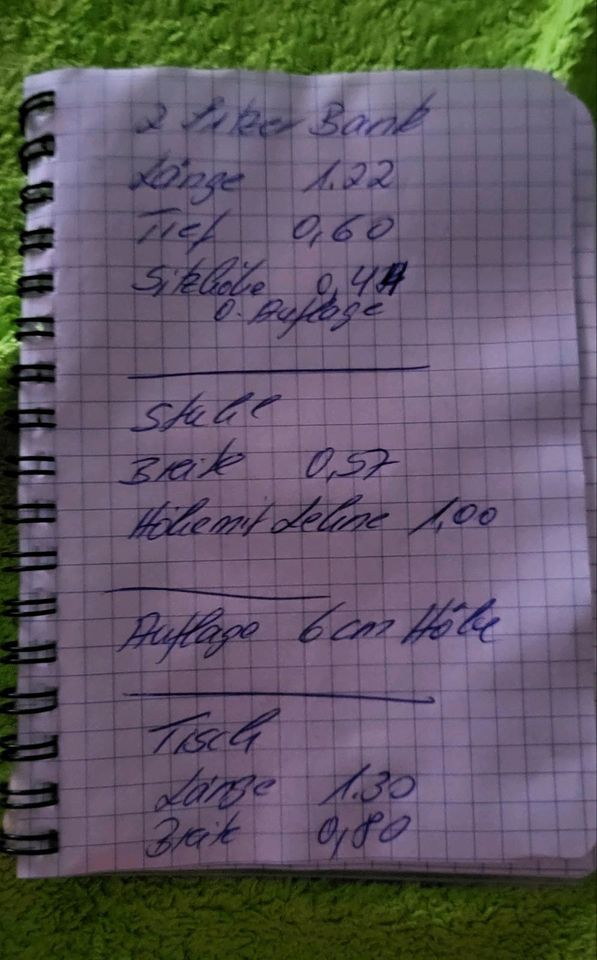 2 Sitzer Bank
Länge 1.22
Tief 0,60
Sitzhöhe
o. Auflage
Stuhl
Breite 0,57
Höhe mit Lehne 1,00
Auflage 6 cm Höhe
Tisch
Länge 1.30
Breite 0,80